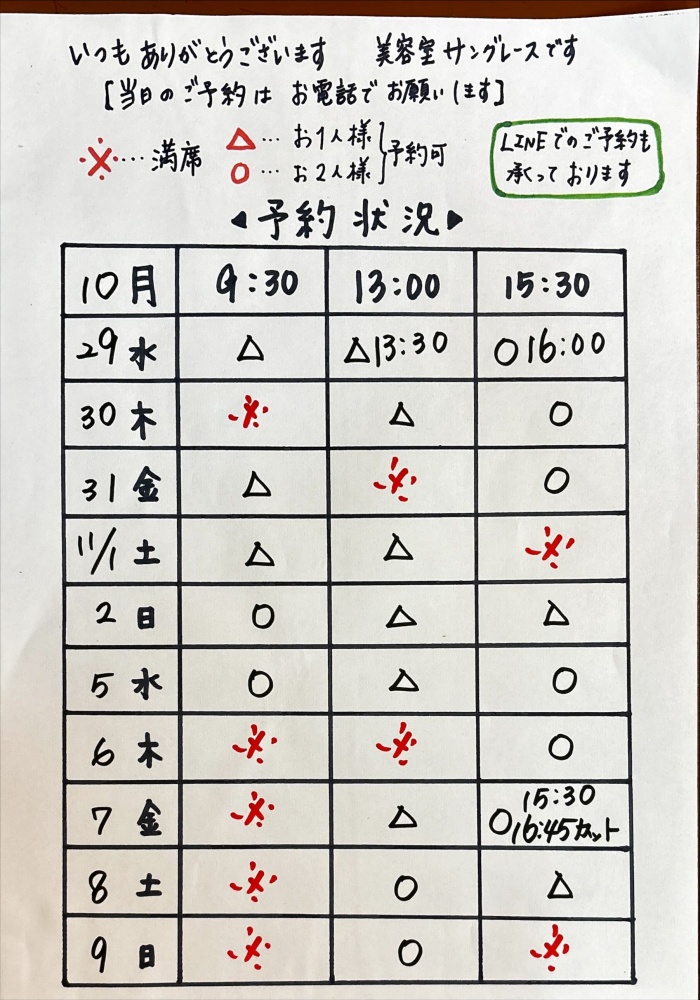 いつもありがとうございます 美容室サングレースです
[当日のご予約は お電話で お願いします]
※…満席 △…お1人様 ○…お2人様 }予約可
LINEでのご予約も
承っております
◀予約状況▶
10月 9:30 13:00 15:30
29 水 △ △13:30 ○16:00
30 木 ※ △ ○
31 金 △ ※ ○
11/1 土 △ △ ※
2 日 ○ △ △
5 水 ○ △ ○
6 木 ※ ※ ○
7 金 ※ △ 15:30 ○16:45カット
8 土 ※ ○ △
9 日 ※ ○ ※